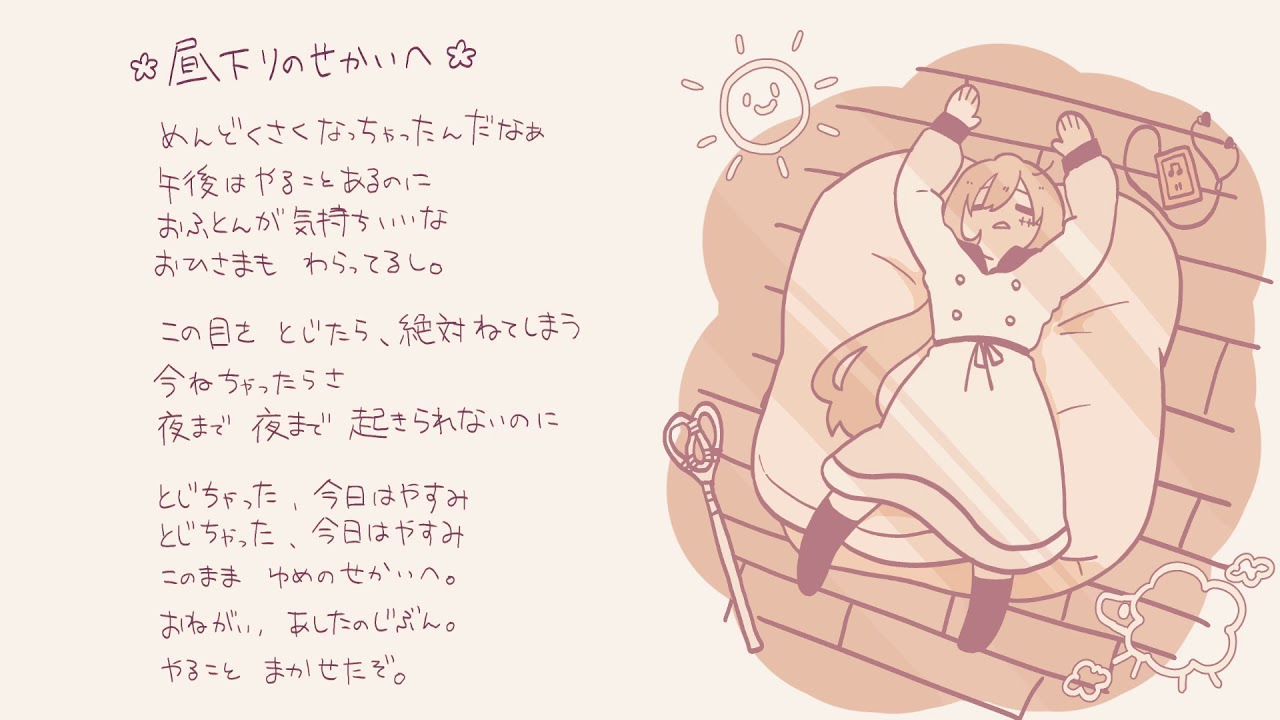 昼下りのせかいへ
めんどくさくなっちゃったんだなぁ
午後はやることあるのに
おふとんが気持ちいいな
おひさまも わらってるし。
この目を とじたら、絶対ねてしまう
今ねちゃったらさ
夜まで 夜まで 起きられないのに
とじちゃった、今日はやすみ
とじちゃった、今日はやすみ
このまま ゆめのせかいへ。
おねがい, あしたのじぶん。
やること まかせたぞ。